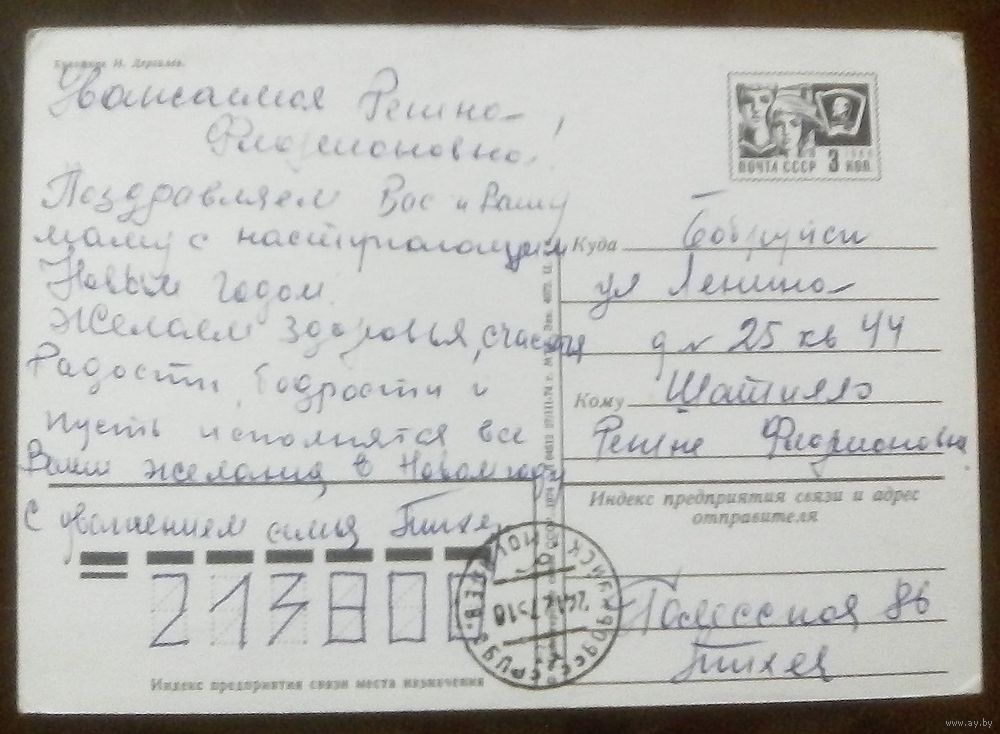 Художник И. Дергилев.
Уважаемая Регина
Флорионовна!
Поздравляем Вас и Вашу
маму с наступающим
Новым годом.
Желаем здоровья, счастья
Радости, бодрости и
пусть исполнятся все
Ваши желания в Новом году
С уважением семья
ПОЧТА СССР 3 КОП.
1966
Куда Бобруйск
ул Ленина
д № 25 кв 44
Кому
Регине Флорионовне
Индекс предприятия связи и адрес
отправителя
86
213800
Индекс предприятия связи места назначения
www.ay.by